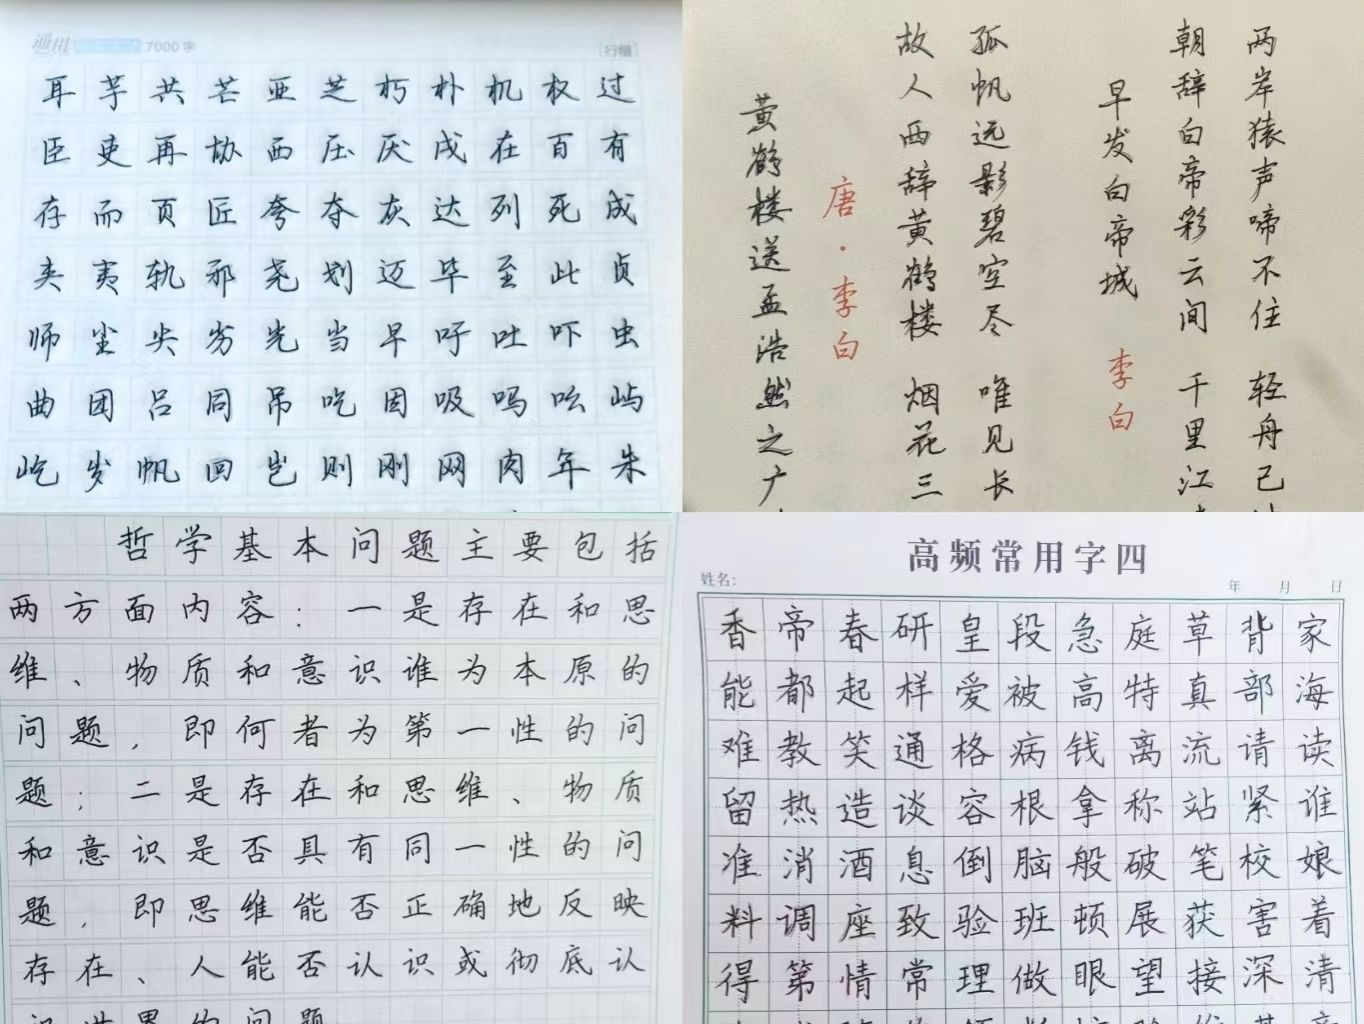 通用
7000字
[行楷]
耳芋共芒亚芝朽朴机权过
臣吏再协西压厌戌在百有
存而页匠夸夺灰达列死成
夹夷轨邪尧划迈毕至此贞
师尘尖劣光当早吁吐吓虫
曲团吕同吊吃因吸吗吆屿
屹岁帆回岂则刚网肉年朱
黄鹤楼送孟浩然之广
唐·李白
故人西辞黄鹤楼 烟花三
孤帆远影碧空尽 唯见长
早发白帝城 李白
朝辞白帝彩云间 千里江
两岸猿声啼不住 轻舟已
哲学基本问题主要包括
两方面内容：一是存在和思
维、物质和意识谁为本原的
问题，即何者为第一性的问
题；二是存在和思维、物质
和意识是否具有同一性的问
题，即思维能否正确地反映
存在、人能否认识或彻底认
识世界的问题
高频常用字四
姓名: 年 月 日
香帝春研皇段急庭草背家
能都起样爱被高特真部海
难教笑通格病钱离流请读
留热造谈容根拿称站紧谁
准消酒息倒脑般破笔校娘
料调座致验班顿展获害着
得第情常理做眼望接深清